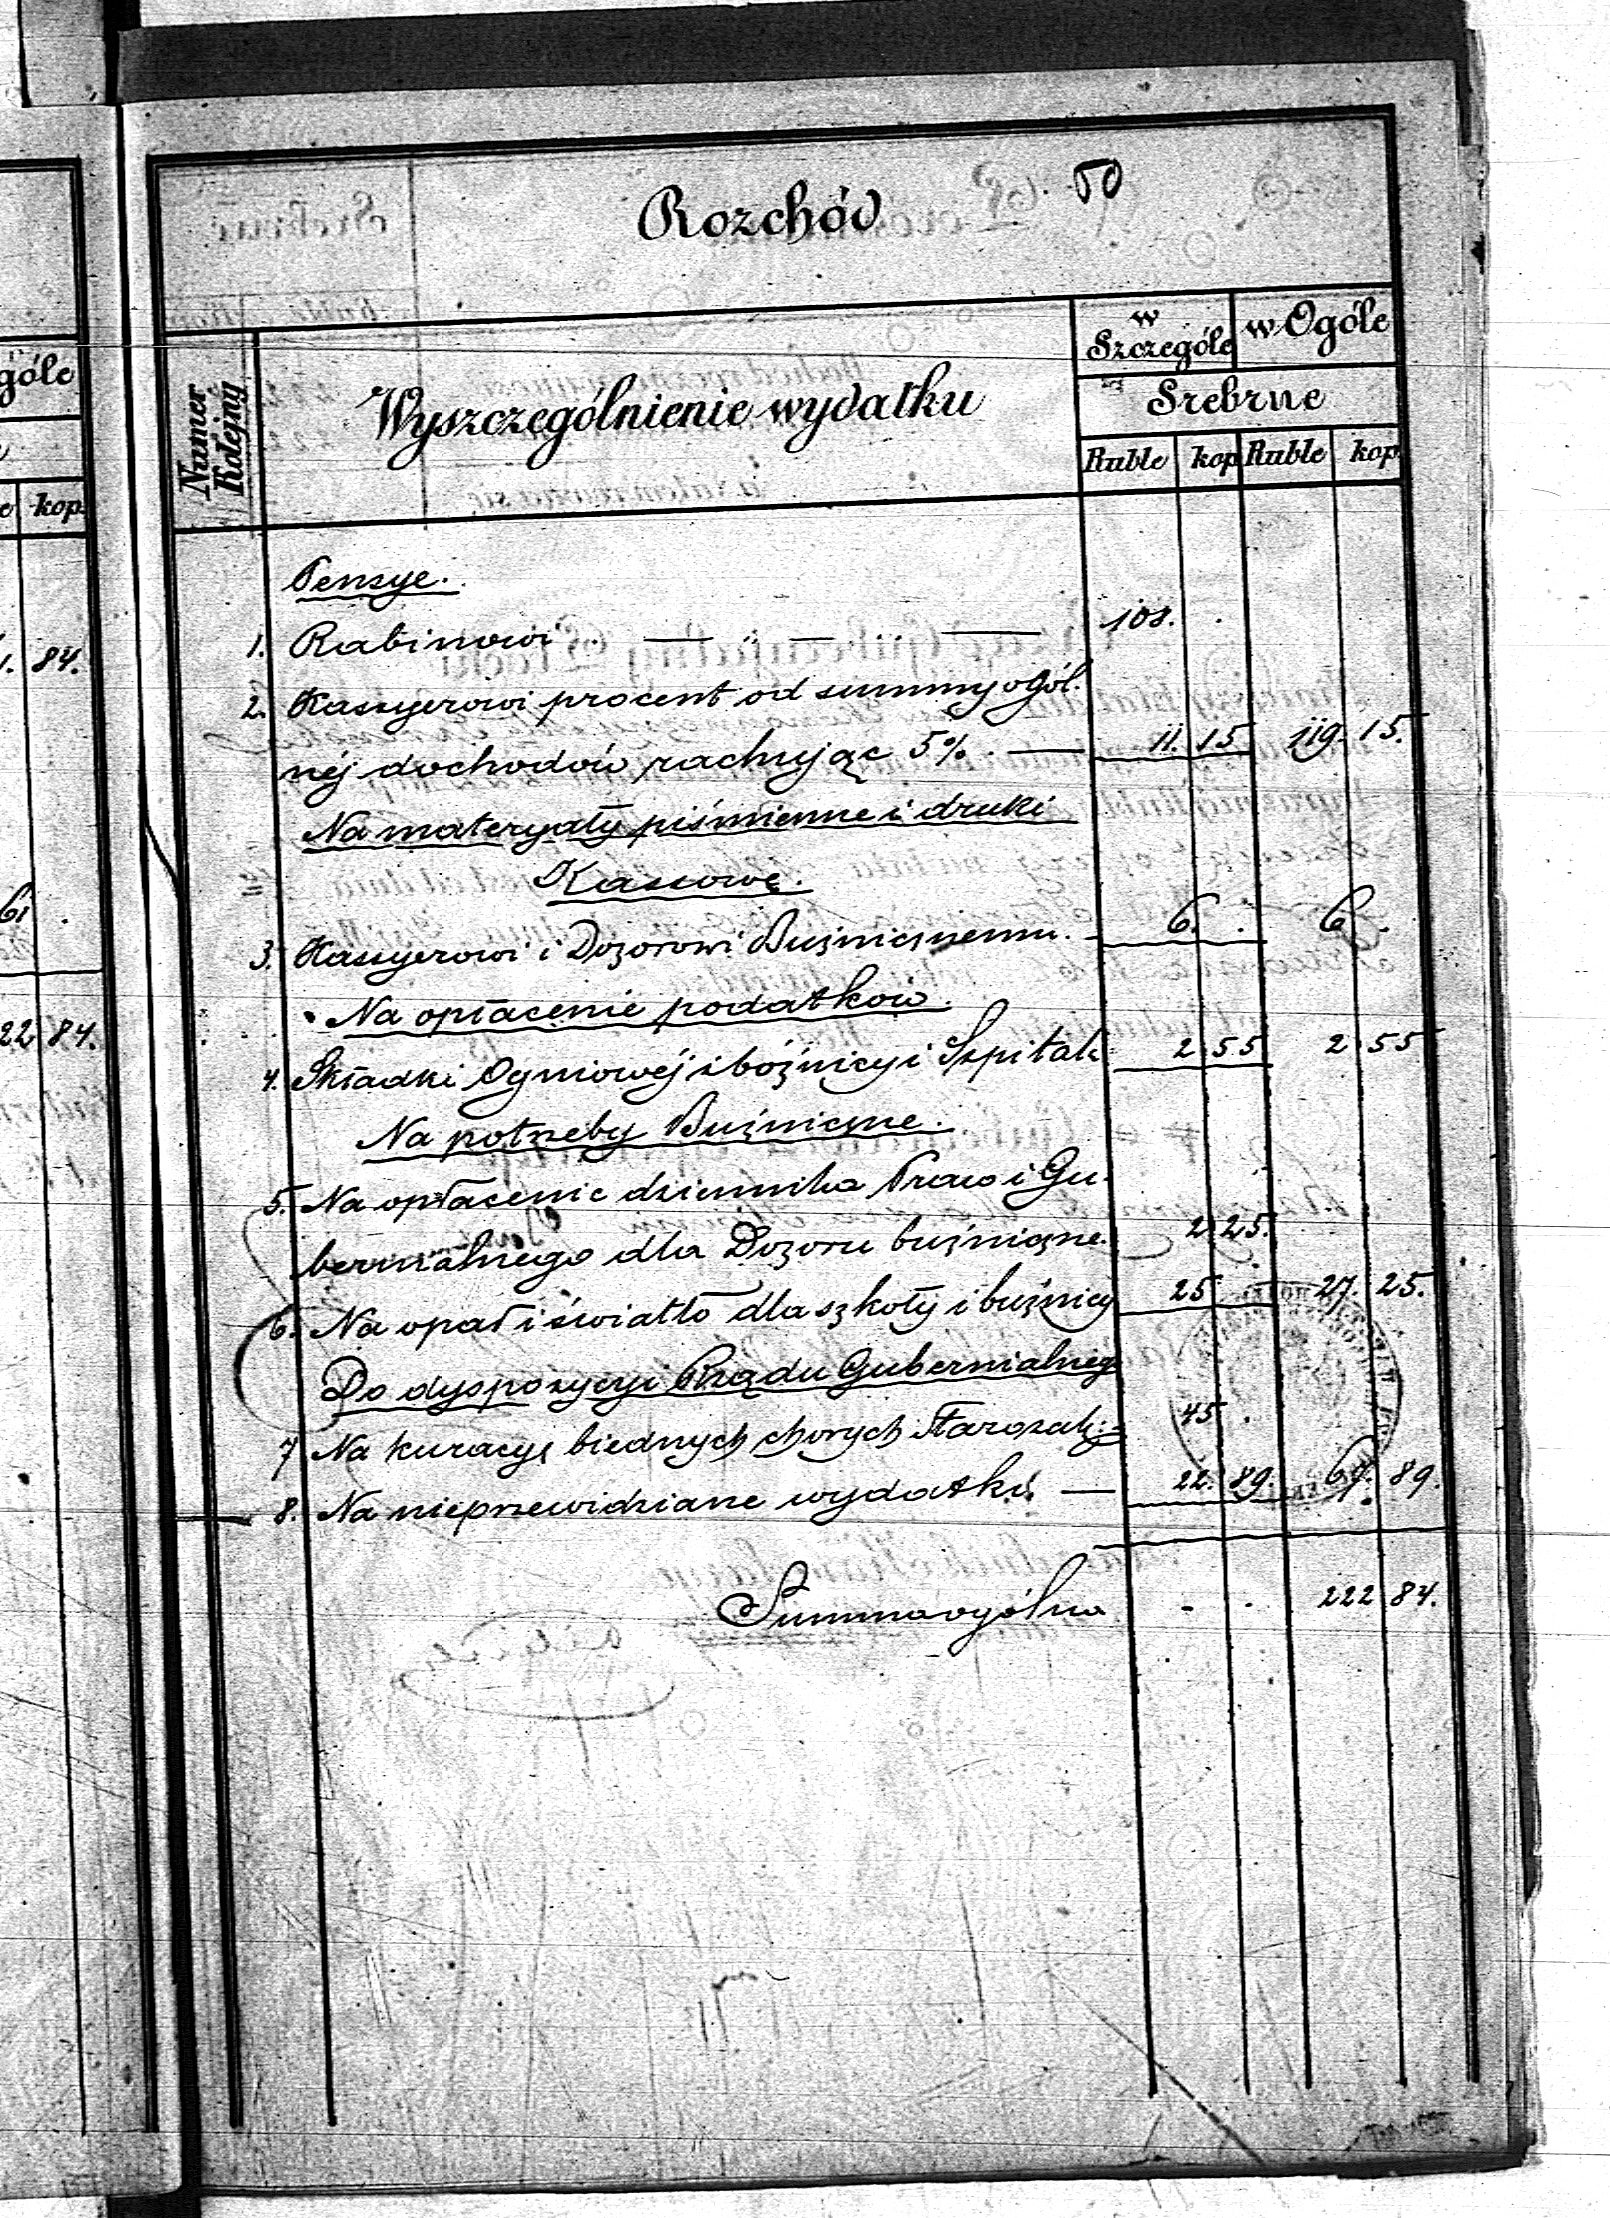 góle
kop.
84.
61 .
22 84.
50
Rozchód
Numer Kolejny
Wyszczególnienie wydatku
w Szczególe
w Ogóle
Srebrne
Ruble kop Ruble kop
Pensye.
1. Rabinowi 108. .
2. Kassyerowi procent od summy ogól-
néj dochodów rachując 5% . — 11. 15 119. 15.
Na materyały piśmienne i druki
Kassowe.
3. Kassyerowi i Dozorowi Buźnicznemu. 6. . 6 .
Na opłacenie podatków.
4. Składki Ogniowéj z bóżnicy i Szpitala 2 55 2 55
Na potrzeby Buźniczne.
5. Na opłacenie dziennika Praw i Gu-
bernialnego dla Dozoru buźniczne. 2 25.
6. Na opał i światło dla szkoły i buźnicy 25 27. 25.
Do dyspozycyi Rządu Gubernialneg
7 Na kuracyę biednych chorych Starozak: 45 .
8. Na nieprzewidziane wydatki — 22. 89. 67. 89.
Summa ogólna - . 222 84.